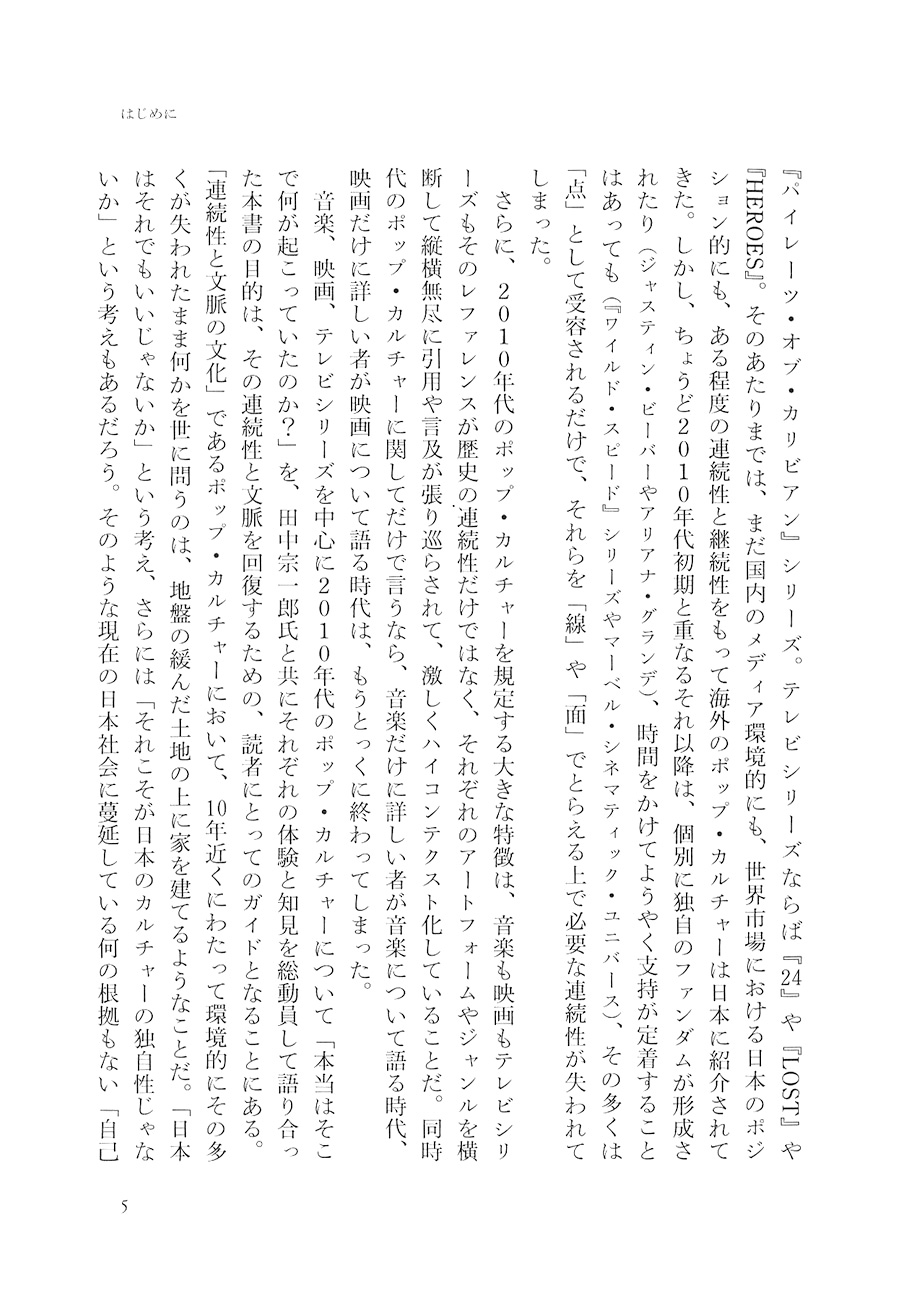 はじめに
『パイレーツ・オブ・カリビアン』シリーズ。テレビシリーズならば『24』や『LOST』や
『HEROES』。そのあたりまでは、まだ国内のメディア環境的にも、世界市場における日本のポジ
ション的にも、ある程度の連続性と継続性をもって海外のポップ・カルチャーは日本に紹介されて
きた。しかし、ちょうど2010年代初期と重なるそれ以降は、個別に独自のファンダムが形成さ
れたり（ジャスティン・ビーバーやアリアナ・グランデ）、時間をかけてようやく支持が定着すること
はあっても（『ワイルド・スピード』シリーズやマーベル・シネマティック・ユニバース）、その多くは
「点」として受容されるだけで、それらを「線」や「面」でとらえる上で必要な連続性が失われて
しまった。
さらに、2010年代のポップ・カルチャーを規定する大きな特徴は、音楽も映画もテレビシリ
ーズもそのレファレンスが歴史の連続性だけではなく、それぞれのアートフォームやジャンルを横
断して縦横無尽に引用や言及が張り巡らされて、激しくハイコンテクスト化していることだ。同時
代のポップ・カルチャーに関してだけで言うなら、音楽だけに詳しい者が音楽について語る時代、
映画だけに詳しい者が映画について語る時代は、もうとっくに終わってしまった。
音楽、映画、テレビシリーズを中心に2010年代のポップ・カルチャーについて「本当はそこ
で何が起こっていたのか？」を、田中宗一郎氏と共にそれぞれの体験と知見を総動員して語り合っ
た本書の目的は、その連続性と文脈を回復するための、読者にとってのガイドとなることにある。
「連続性と文脈の文化」であるポップ・カルチャーにおいて、10年近くにわたって環境的にその多
くが失われたまま何かを世に問うのは、地盤の緩んだ土地の上に家を建てるようなことだ。「日本
はそれでもいいじゃないか」という考え、さらには「それこそが日本のカルチャーの独自性じゃな
いか」という考えもあるだろう。そのような現在の日本社会に蔓延している何の根拠もない「自己
5